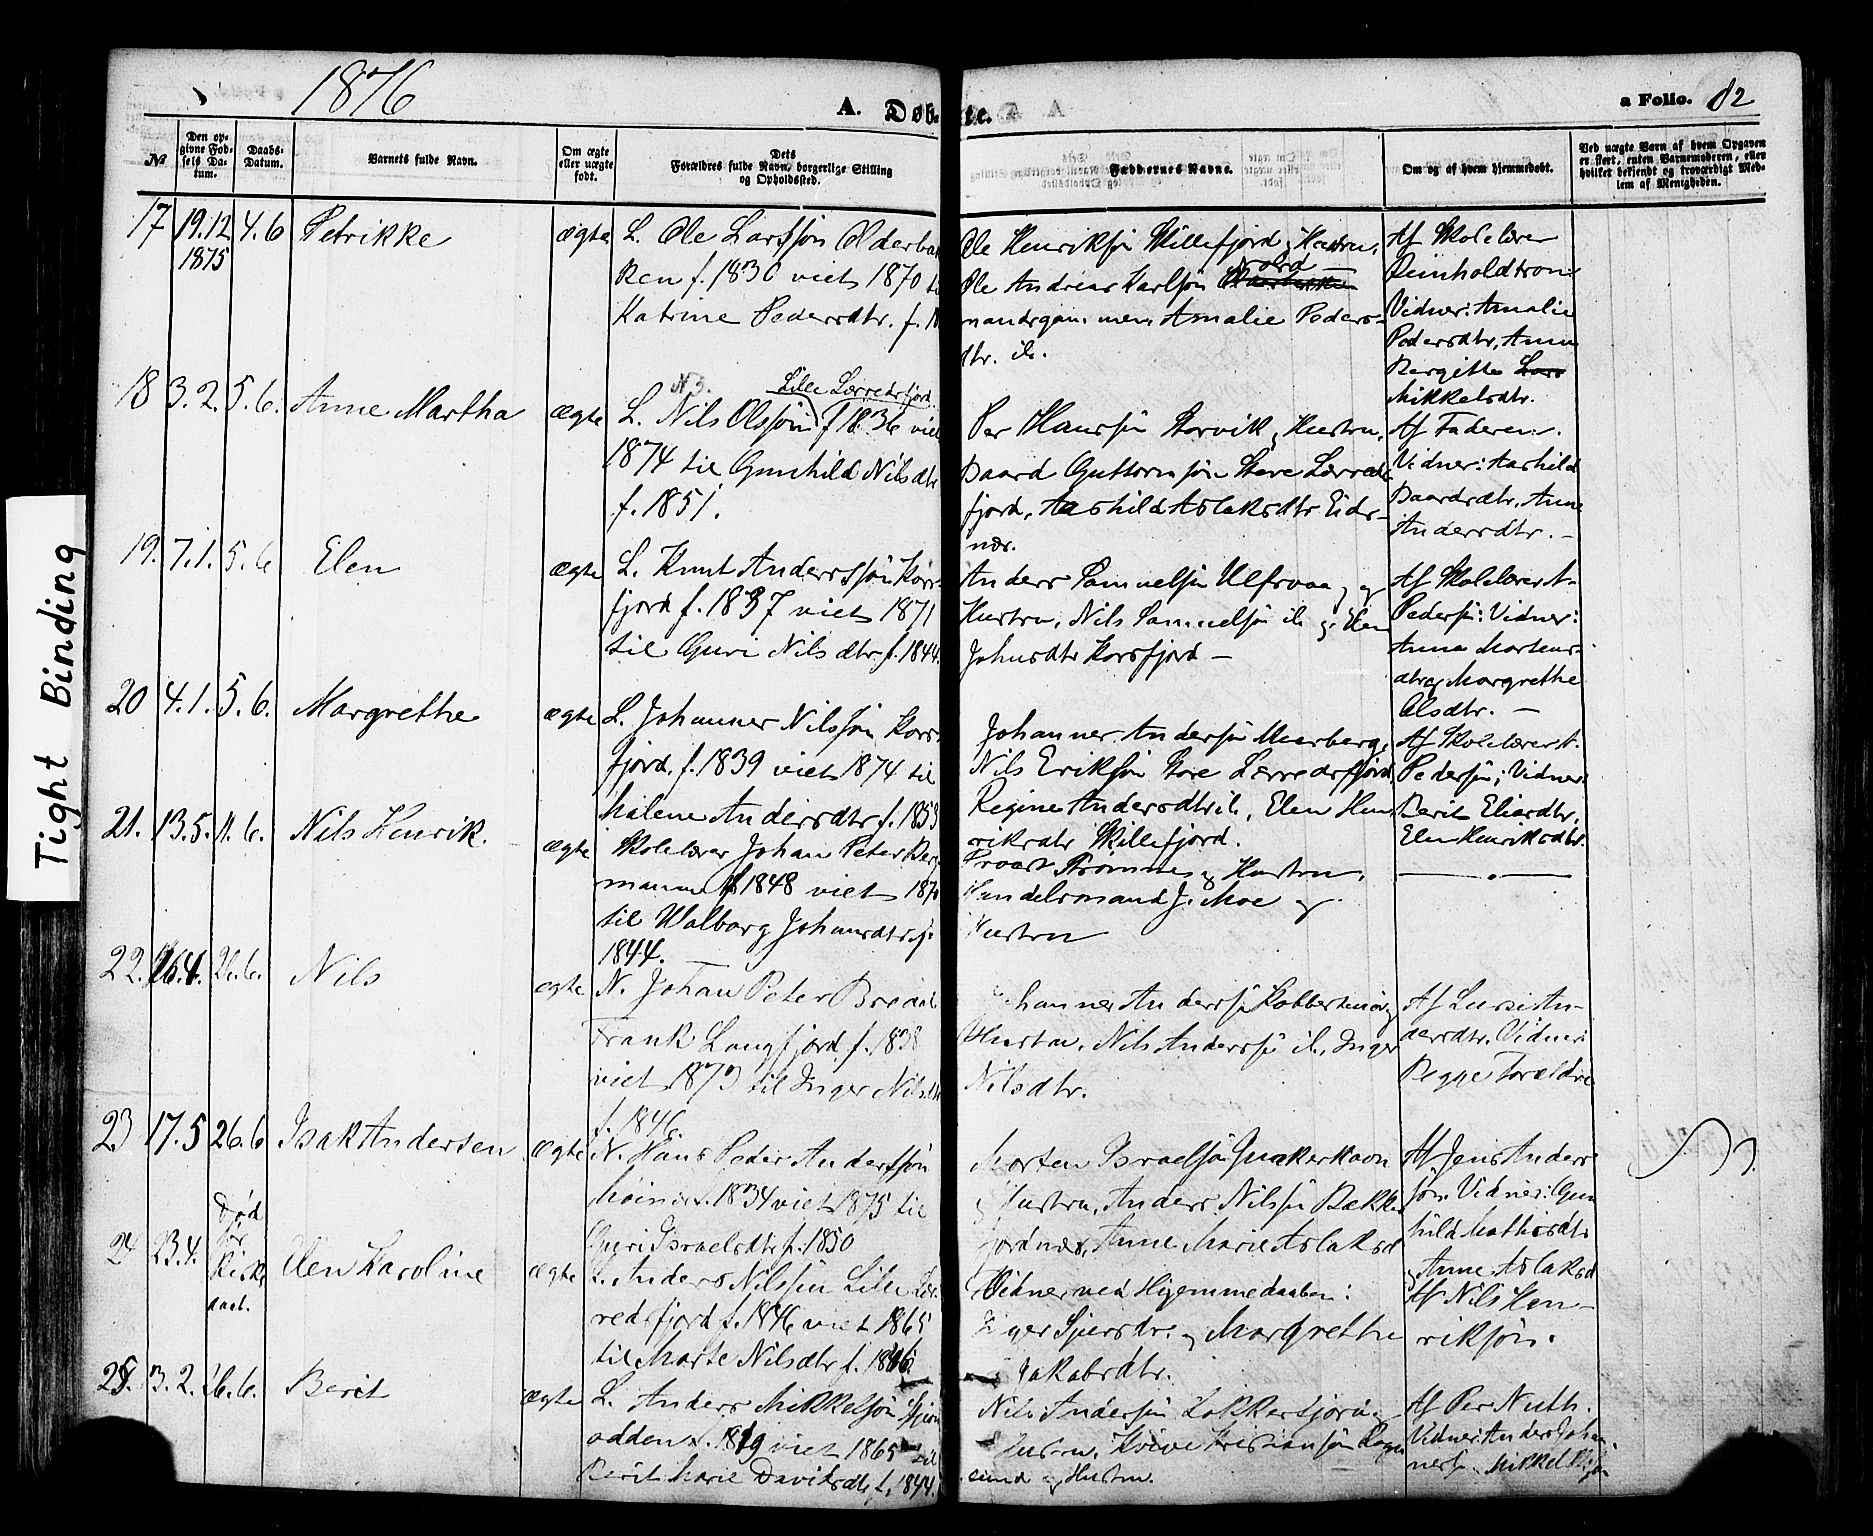 1876
A. Døb-
te.
a Folio. 82
№
Den op-
givne Fød-
sels Da-
tum.
Daabs-
Datum.
Varnets fulde Navn.
Om ægte
eller uægte
født.
Dets
Forældres fulde Navn, borgerlige Stilling
og Opholdssted.
Faddernes Navne.
Om og af hvem hjemmedøbt.
Ved uægte Barn af hvem Opgaven
er skeet, enten Barnemoderen, eller
hvilket bekjendt og troværdigt Med-
lem af Menigheden.
17 19.12 4.6 Petrikke ægte L. Ole Larssøn Olderbak
1875
ken f. 1830 viet 1870 til
Katrine Pedersdtr. f.
Ole Henriksøn Skillefjord, Hustru,
Nord
Ole Andreas Karlsøn
mandsgam. men, Amalie Peders-
dtr. ib.
Af Skolelærer
Reinholdtsen
Vidner: Amalie
Pedersdtr, Anne
Bergitte Lars
Mikkelsdtr.
18 3.2. 5.6. Anne Martha ægte
N3. Lille Lerredsfjord.
L. Nils Olssøn f 1836 viet
1874 til Gunhild Nilsdtr
f. 1851.
Per Hansøn Storvik, Hustru,
Baard Guttormsøn Store Lerreds
fjord, Aashild Aslaksdtr Eids-
næs.
Af Faderen.
Vidner: Aashild
Baardsdtr, Anne
Andersdtr. -
19. 7.1. 5.6 Elen ægte L. Knut Anderssøn Kors-
fjord f. 1837 viet 1871
til Guri Nilsdtr. f. 1844.
Anders Samuelsøn Ulfsvaag og
Hustru, Nils Samuelsøn ib. og Elen
Johnsdtr Korsfjord -
Af Skolelærer A.
Pedersøn: Vidner:
Anna Mortens-
dtr og Margrethe
Olsdtr. -
20 4.1. 5.6. Margrethe ægte L. Johannes Nilssøn Kors-
fjord, f. 1839 viet 1874 til
Malene Andersdtr f. 1853
Johannes Andersøn Marberg,
Nils Eriksøn Store Lerredsfjord,
Regine Andersdtr ib, Elen Hen-
riksdtr Skillefjord.
Af Skolelærer A.
Pedersøn; Vidner:
Berit Eliasdtr,
Elen Henriksdtr.
21. 13.5. 11.6. Nils Henrik. ægte Skolelærer Johan Peter Berg
mann f 1848 viet 187
til Walborg Johnsdtr. f.
1844.
Provst Strømnes og Hustru,
Handelsmand J. Moe og
Hustru
22. 16.4. 26.6. Nils ægte N. Johan Peter Bredal
Frank Langfjord, f. 1838
viet 1873 til Inger Nilsdtr
f. 1846
Johannes Anderssøn Kobbernæs og
Hustru, Nils Anderssøn ib, Inger
Nilsdtr.
Af Lussi An-
dersdtr. Vidner:
Begge Forældre
23 17.5 26.6 Isak Andersen ægte N. Hans Peder Anderssøn
f. 1834 viet 1875 til
Guri Israelsdtr f. 1850
Morten Israelsøn Qvækerhavn
Hustru, Anders Nilssøn Bække
fjordnæs, Anne Marie Aslaksd
Af Jens Anders
søn. Vidner: Gun
hild Mathisdtr
og Anne Aslaksd
24 23.4. Død
før
Kirke
daab.
Elen Karoline ægte L. Anders Nilssøn Lille Ler
redsfjord f. 1846 viet 1865
til Marte Nilsdtr f. 1846
Vidner ved Hjemmedaaben:
Inger Sjursdtr. og Margrethe
Jakobsdtr.
Af Nils Hen-
riksøn.
25. 3.2. 26.6. Berit ægte L. Anders Mikkelsøn
odden f. 1819 viet 1865 til
Berit Marie Davidsdtr f. 1844.
Nils Andersøn Lokkerfjord og
Hustru, Kristiansøn
sund og Hustru.
Af Per Nuth.
Vidner: Anders Johan
nes. Mikkel
Tight Binding